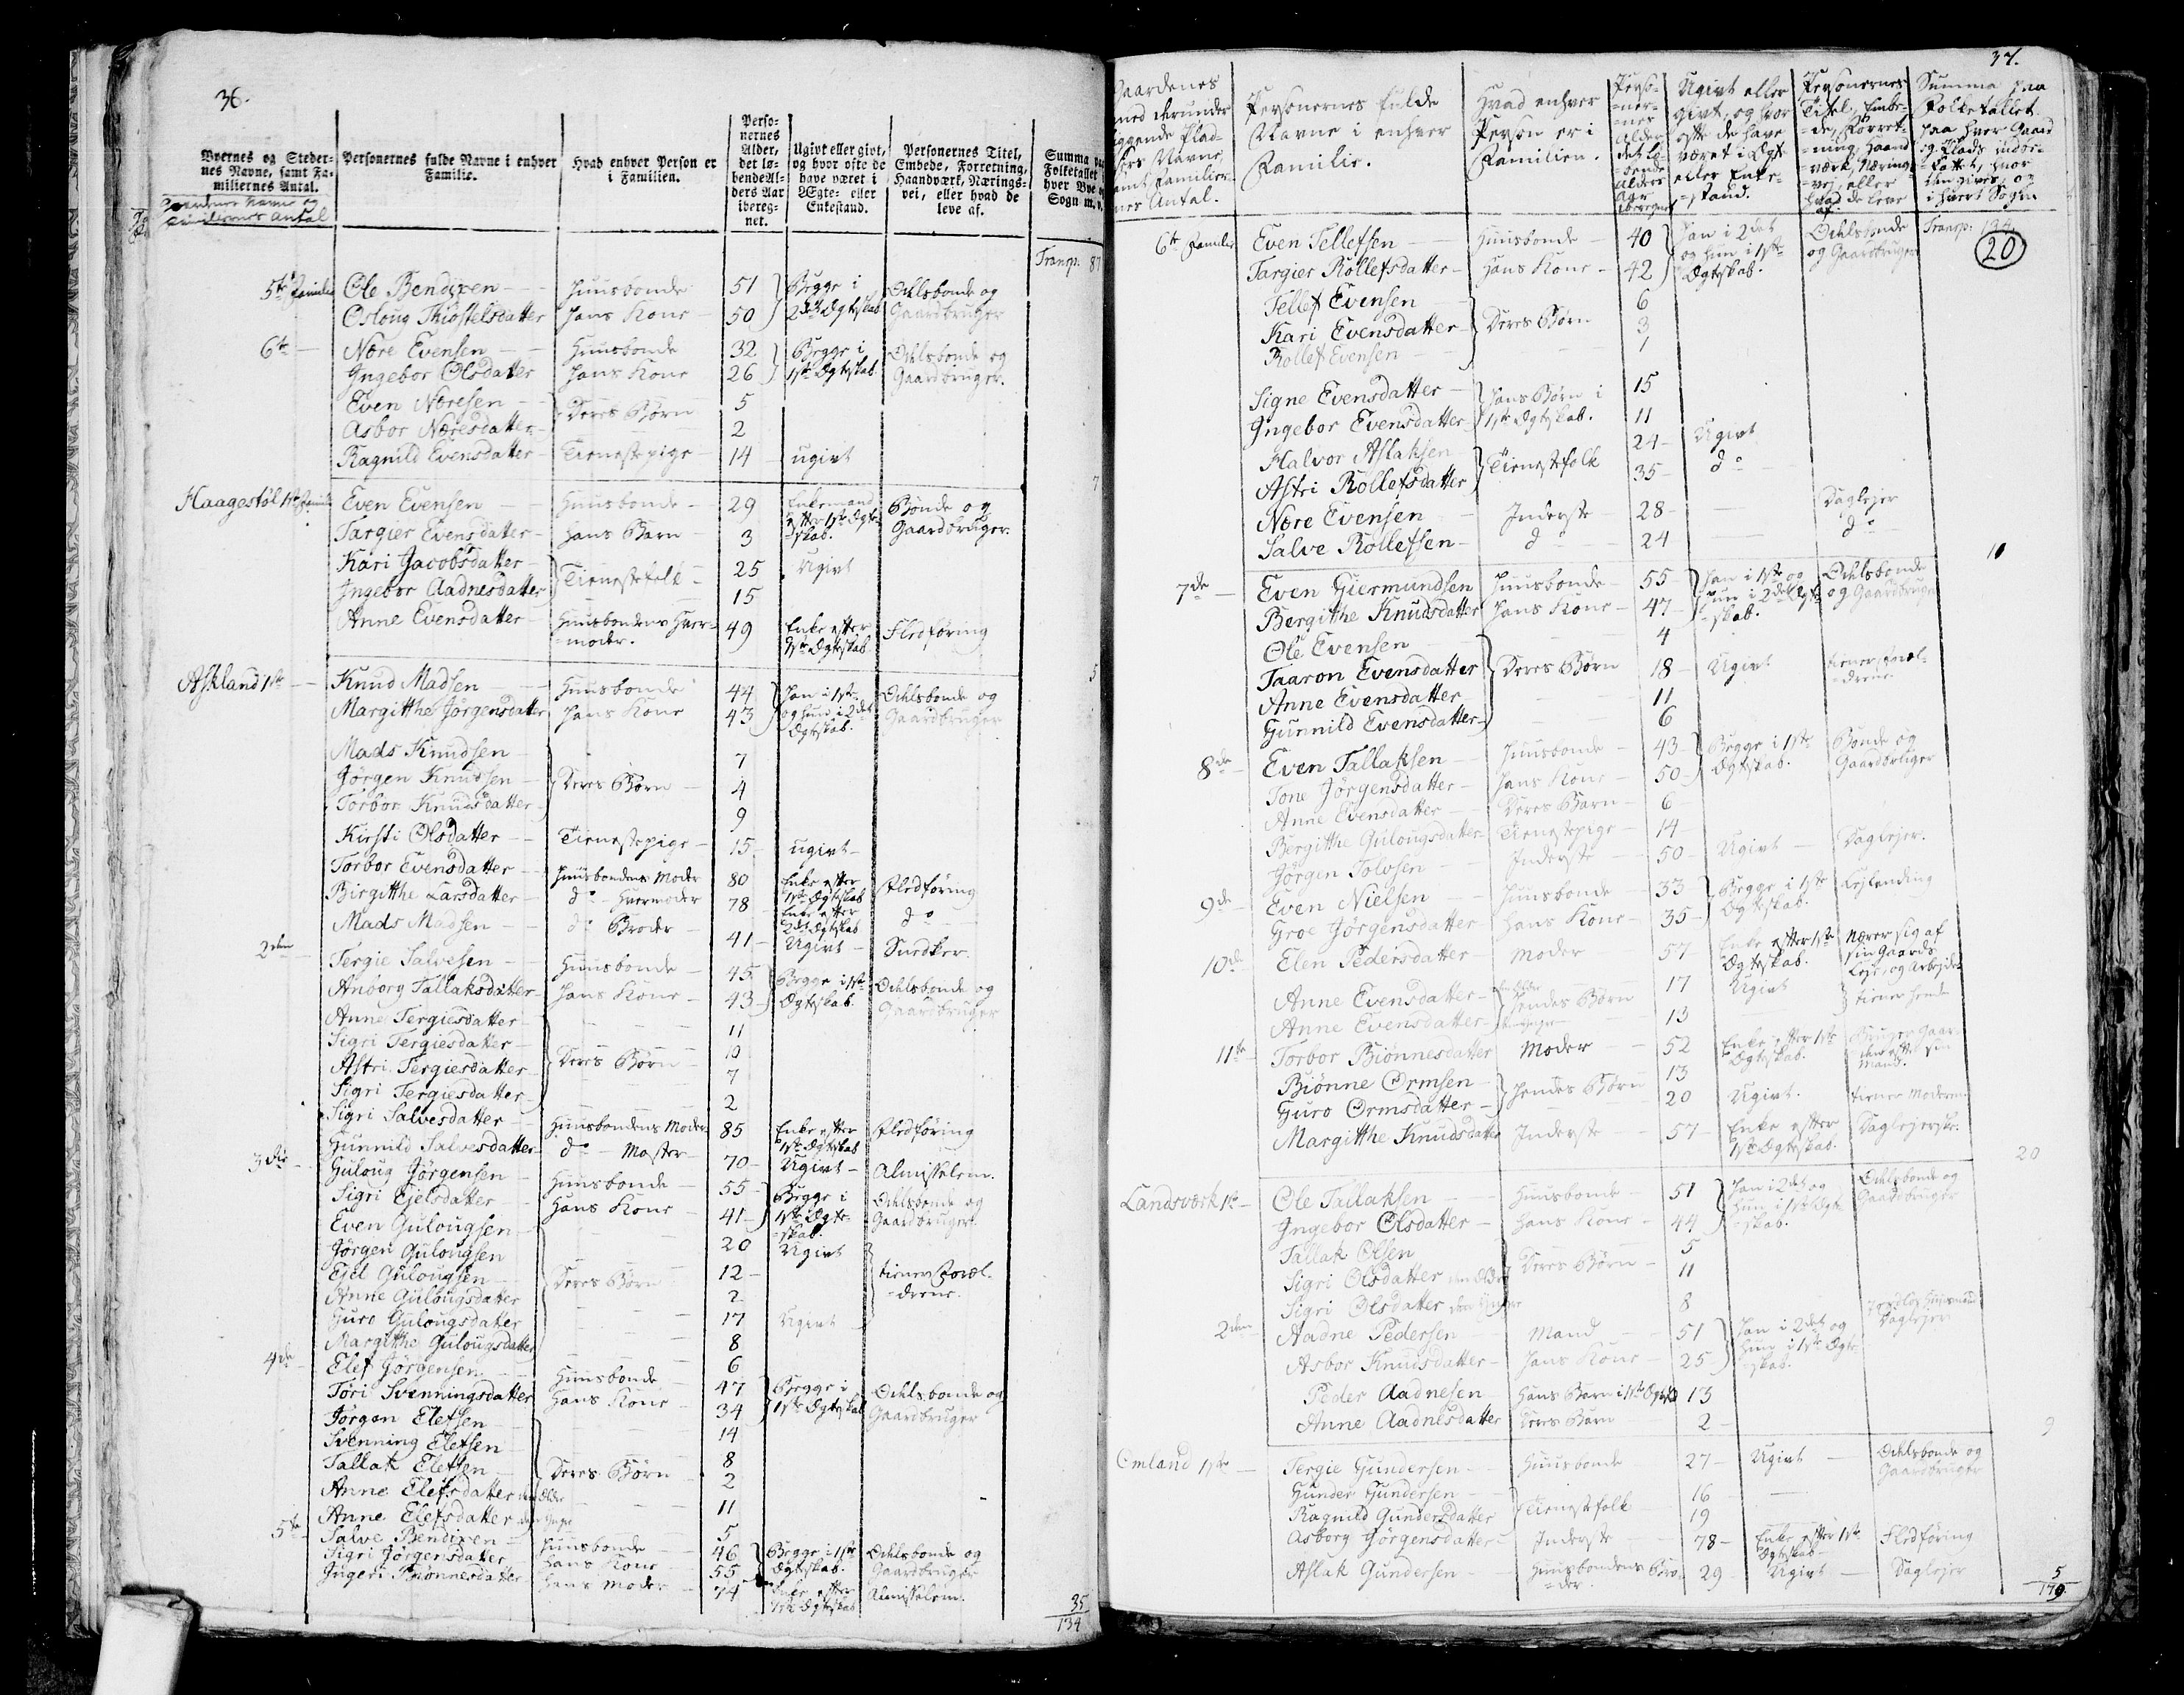 36.
Byernes og Steder-
nes Navne, samt Fa-
miliernes Antal.
Gaardenes Navne og
Familiernes Antal
Personernes fulde Navne i enhver
Familie.
Hvad enhver Person er
i Familien.
Perso-
nernes
Alder,
det lø-
bende Al-
ders Aar
ibereg-
net.
Ugivt eller givt,
og hvor ofte de
have været i
Ægte- eller
Enkestand.
Personernes Titel,
Embede, Forretning,
Haandværk, Nærings-
vei, eller hvad de
leve af.
Summa paa
Folketallet
hver Bye
Sogn m. v.
Transp: 87
5te Familie Ole Bendixen Huusbonde 51 Begge i 2det Ægteskab Odelsbonde og
Osloug Thiostelsdatter Hans Kone 50 Gaardbruger
6te Nære Evensen Huusbonde 32 Begge i 1ste Ægteskab Odelsbonde og
Ingebor Olsdatter Hans Kone 26 Gaardbruger.
Even Næresen Deres Børn 5
Asbor Næresdatter 2
Ragnild Evensdatter Tienestepige 14 ugivt
7
Haagestøl 1ste Familie Even Evensen Huusbonde 29 Enkemand efter 1ste Ægte-skab. Bonde og Gaardbruger.
Targier Evensdatter Hans Barn 3
Kari Jacobsdatter Tienestefolk 25 Ugivt
Ingebor Aadnesdatter 15
Anne Evensdatter Huusbondens Huer-moder. 49 Enke efter 1ste Ægteskab Fledføring
5
Askland 1ste Knud Madsen Huusbonde 44 Han i 1ste og hun i 2det Ægteskab. Odelsbonde og
Margitthe Jørgensdatter Hans Kone 43 Gaardbruger
Mads Knudsen 7
Jørgen Knudsen Deres Børn 4
Torbor Knudsdatter 9
Kirsti Olsdatter Tienestepige 15 ugivt
Torbor Evensdatter Huusbondens Moder 80 Enke efter 1ste Ægteskab Fledføring
Birgitthe Larsdatter do Huermoder 78 Enke efter 2det Ægteskab do
Mads Madsen do Broder 41 Ugivt Snedker.
2den Tergie Salvesen Huusbonde 45 Begge i 1ste Ægteskab. Odelsbonde og
Anborg Tallaksdatter Hans Kone 43 Gaardbruger
Anne Tergiesdatter 11
Sigri Tergiesdatter 10
Astri Tergiesdatter Deres Børn 7
Sigri Tergiesdatter 2
Sigri Salvesdatter Huusbondens Moder 85 Enke efter 1ste Ægteskab Fledføring
Gunnild Salvesdatter do Moster 70 Ugivt Almisselem.
3die Guloug Jørgensen Huusbonde 55 Begge i 1ste Ægte-skab. Odelsbonde og
Sigri Ejelsdatter Hans Kone 41 Gaardbruger.
Even Gulougsen 20 Ugivt
Jørgen Gulougsen 12 tiener Foræl-drene.
Ejel Gulougsen Deres Børn 2
Anne Gulougsdatter 17 Ugivt
Guro Gulougsdatter 8
Margitthe Gulougsdatter 6
4de Elef Jørgensen Huusbonde 47 Begge i 1ste Ægteskab Odelsbonde og
Tøri Svenningsdatter Hans Kone 34 Gaardbruger
Jørgen Elefsen 14
Svenning Elefsen 8
Tallak Elefsen Deres Børn 2
Anne Elefsdatter den Eldre 11
Anne Elefsdatter den Yngre 5
5te Salve Bendixen Huusbonde 46 Begge i 1ste Ægteskab. Odelsbonde og
Sigri Jørgensdatter Hans Kone 55 Gaardbruger
Ingeri Biønnesdatter Hans Moder 74 Enke efter 1ste Ægteskab Almisselem.
35
134
37.
Gaardenes
med derunder
liggende Plad-
sers Navne,
samt Familier-
nes Antal.
Personernes fulde
Navne i enhver
Familie.
Hvad enhver
Person er i
Familien.
Perso-
ner-
nes
Alder
det lø-
bende
Alders
Aar
iberegnet
Ugivt eller
givt, og hvor
ofte de have
været i Ægte
eller Enke-
stand.
Personernes
Titel, Embe-
de, Forret-
ning, Haand
værk, Nærings
vej, eller
hvad de leve
af.
Summa paa
Folketallet
paa hver Gaard
og Plads
i hvert Sogn
Transp: 134
20
6te Familie Even Tellefsen Huusbonde 40 Han i 2det og hun i 1ste Ægteskab. Odelsbonde
Targier Rollefsdatter Hans Kone 42 og Gaardbruger
Tellef Evensen 6
Kari Evensdatter Deres Børn 3
Rollef Evensen 1
Signe Evensdatter Hans Børn i 1ste Ægteskab. 15
Ingebor Evensdatter 11
Halvor Aslaksen Tienestefolk 24 Ugivt
Astri Rollefsdatter 35 do
Nære Evensen Inderste 28 Daglejer
Salve Rollefsen do 24 do
11
7de Even Giermundsen Huusbonde 55 Han i 1ste og hun i 2det Ægte-skab. Odelsbonde
Bergitthe Knudsdatter Hans Kone 47 og Gaardbruger
Ole Evensen 4
Taaron Evensdatter Deres Børn 18 Ugivt tiener Foræl-drene.
Anne Evensdatter 11
Gunnild Evensdatter 6
8de Even Tallaksen Huusbonde 43 Begge i 1ste Ægteskab. Bonde og
Tone Jørgensdatter Hans Kone 50 Gaardbruger
Anne Evensdatter Deres Barn 6
Bergitthe Gulougsdatter Tienestepige 14
Jørgen Tolvsen Inderste 50 Ugivt Daglejer.
9de Even Nielsen Huusbonde 33 Begge i 1ste Ægteskab. Lejlending
Groe Jørgensdatter Hans Kone 35
10de Elen Pedersdatter Moder 57 Enke efter 1ste Ægteskab. Nærer sig af sin Gaards Leje, og Arbejde
Anne Evensdatter Hendes Børn 17 Ugivt tiener hende
Anne Evensdatter 13
11te Torbor Biønnesdatter Moder 52 Enke efter 1ste Ægteskab. Bruger Gaar-den efter sin Mand.
Biønne Ormsen Hendes Børn 13
Guro Ormsdatter 20 Ugivt. tiener Moderen.
Margitthe Knudsdatter Inderste 57 Enke efter 1ste Ægteskab. Daglejerske.
20
Landsværk 1ste Ole Tallaksen Huusbonde 51 Han i 2det og hun i 1ste Ægte-skab. Odelsbonde og
Ingebor Olsdatter Hans Kone 44 Gaardbruger
Tallak Olsen 5
Sigri Olsdatter den Eldre Deres Børn 11
Sigri Olsdatter den Yngre 8
2den Aadne Pedersen Mand 51 Han i 2det og hun i 1ste Ægte-skab. Jordløs Huusmand Daglejer
Asbor Knudsdatter Hans Kone 25
Peder Aadnesen Hans Barn i 1ste Ægtesk. 13
Anne Aadnesdatter Deres Barn 2
9
Omland 1ste Tergie Gundersen Huusbonde 27 Ugivt Odelsbonde og Gaardbruger
Gunder Gundersen Tienestefolk 16
Ragnild Gundersdatter 19
Asborg Jørgensdatter Inderste 78 Enke efter 1ste Ægteskab Fledføring
Aslak Gundersen Huusbondens Bro-der. 29 Ugivt Daglejer
5
179